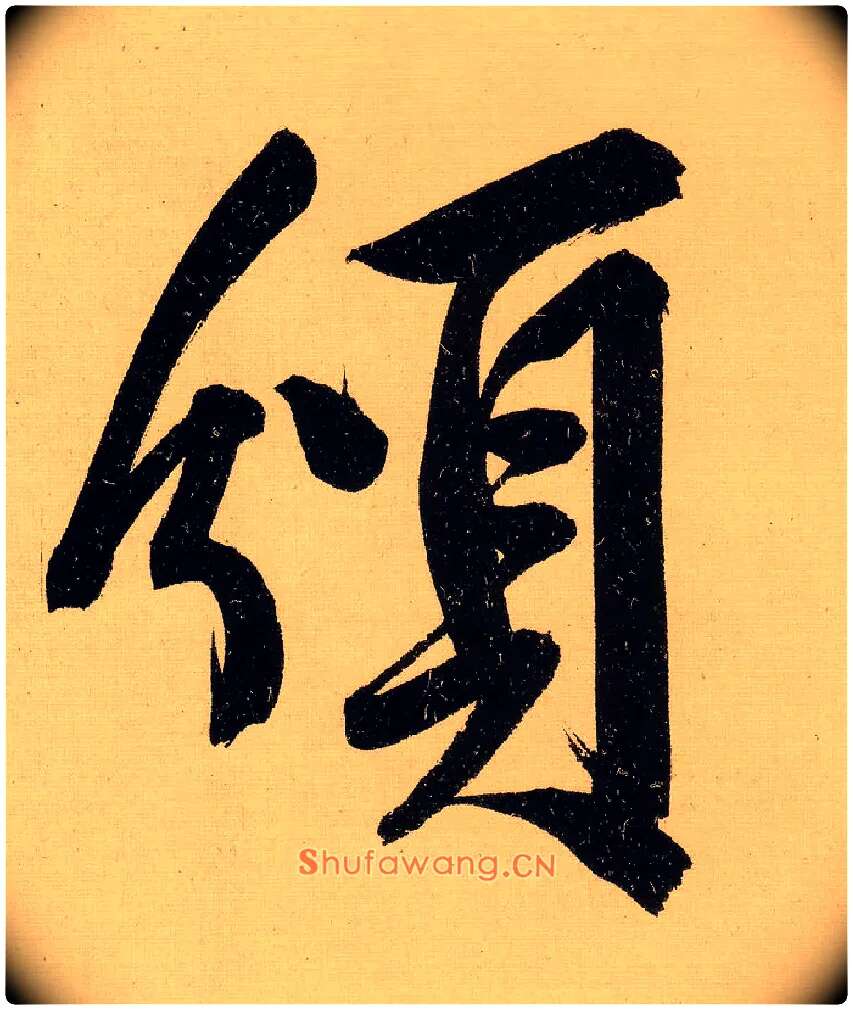 領
shufawang.CN